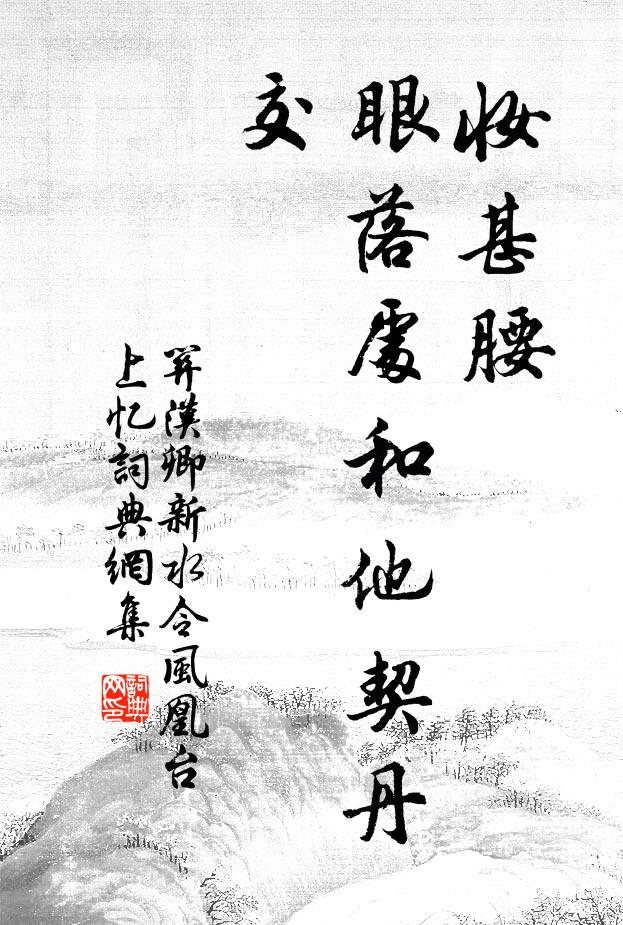 妝甚腰
眼落處和他契丹
交
関漢卿新水令風凰台
上忆詞典網集
詞典
网印